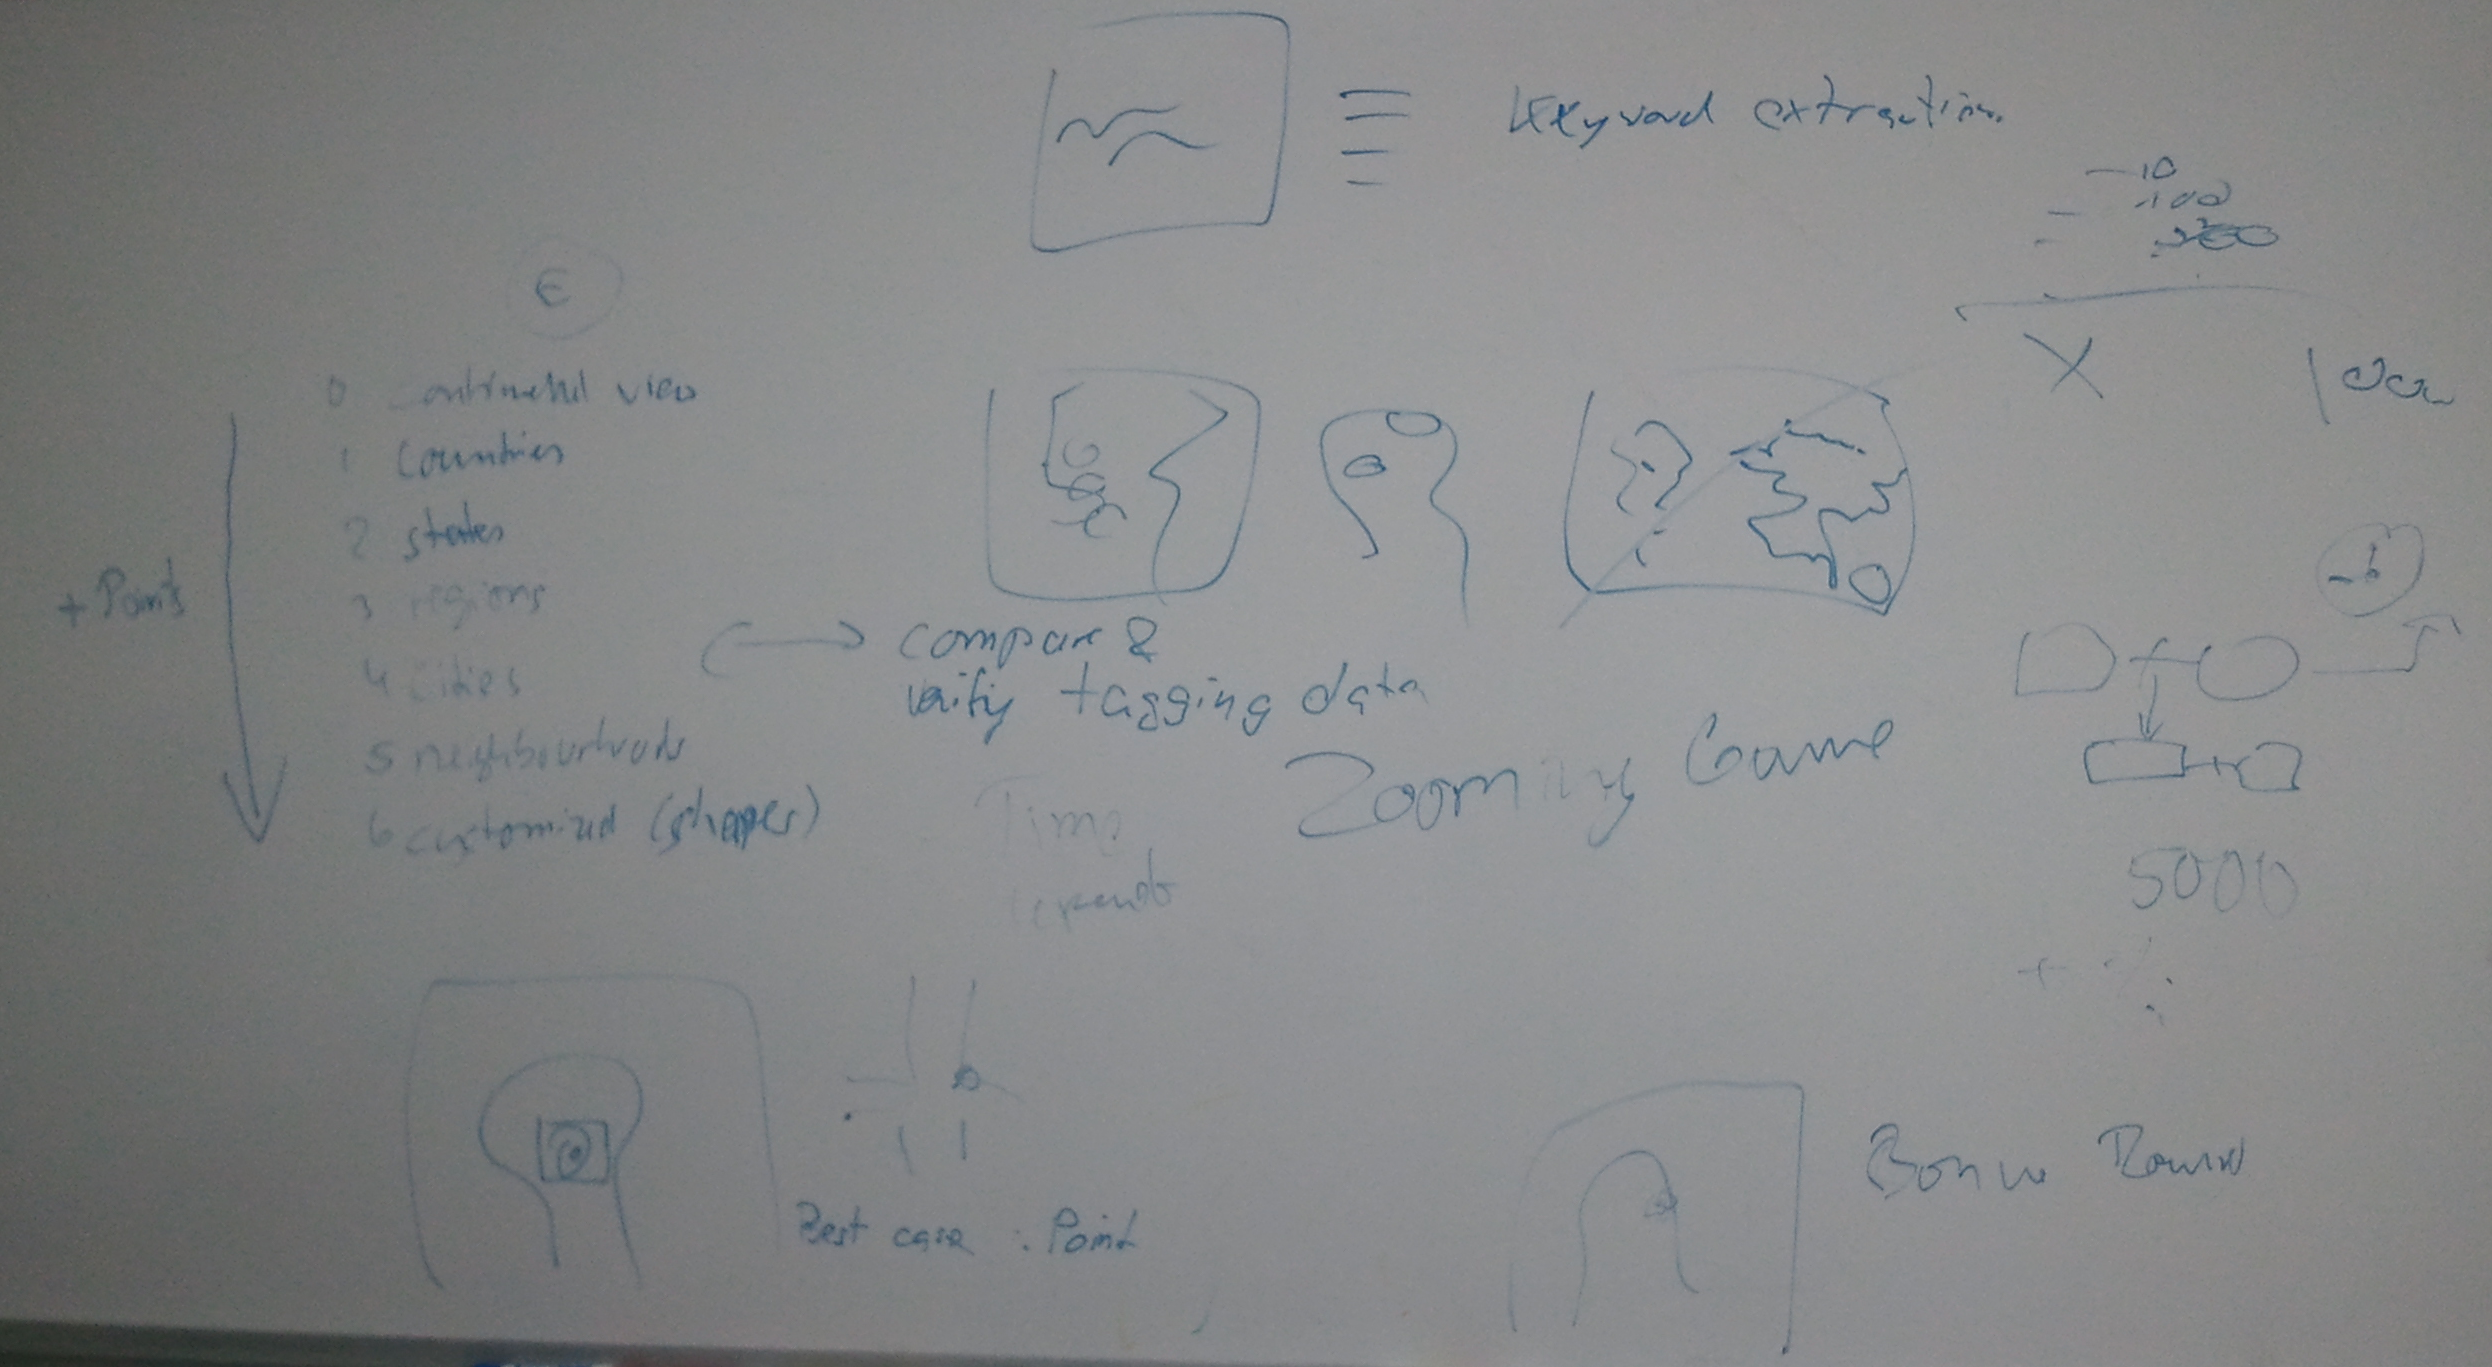 Keyword extraction
-10
-100
X
1000
€
0 continental view
1 countries
2 states
3 regions
4 cities
5 neighbourhoods
6 customized (shapes)
+ Points
compare &
verify tagging data
Zooming Game
Time
5000
Best case : Point
Bonus Round